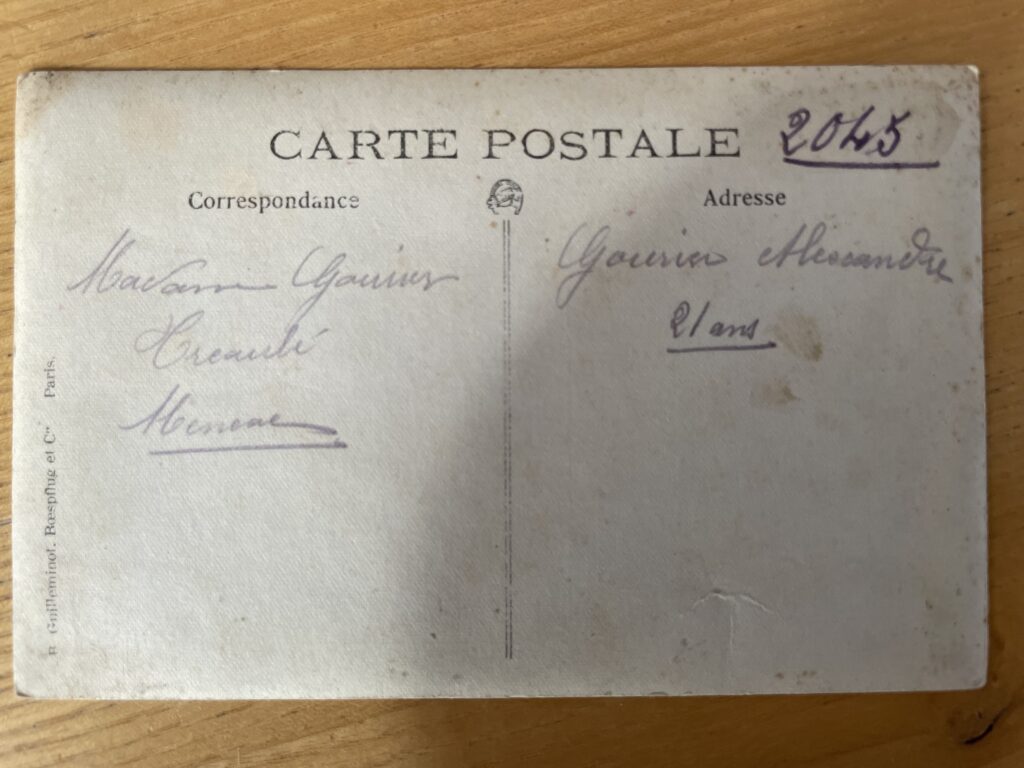 CARTE POSTALE
2045
Correspondance
Adresse
Madame Gourier
Tréaulé
Meneac
Gourier Alexandre
21 ans
R. Guilleminot, Bœspflug et Cie Paris.